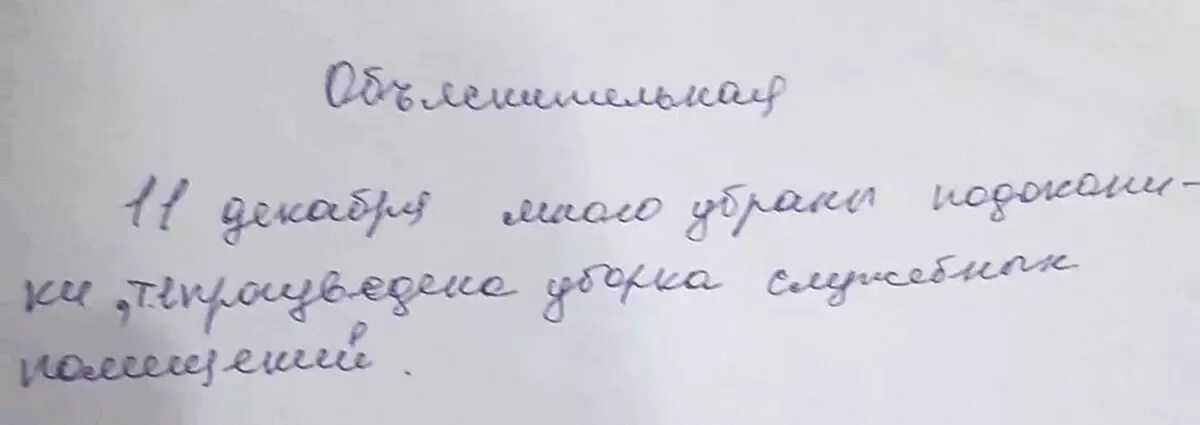 Объяснительная
11 декабря мною убраны подоконни-
ки, произведена уборка служебных
помещений.